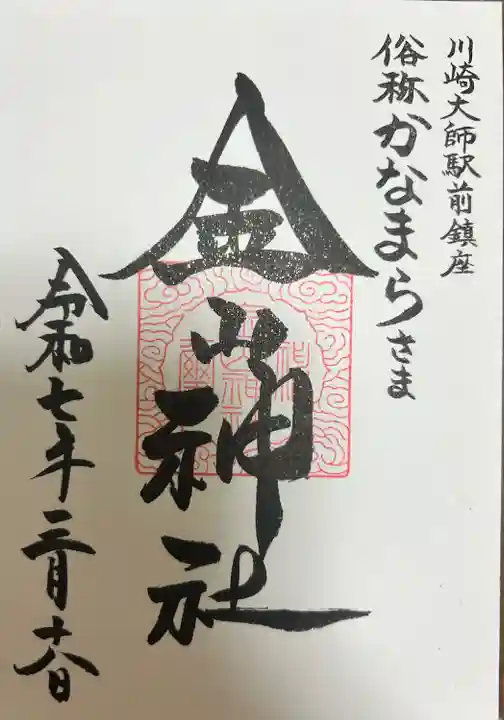 川崎大師駅前鎮座
俗称かなまらさま
金山神社
令和七年三月十八日